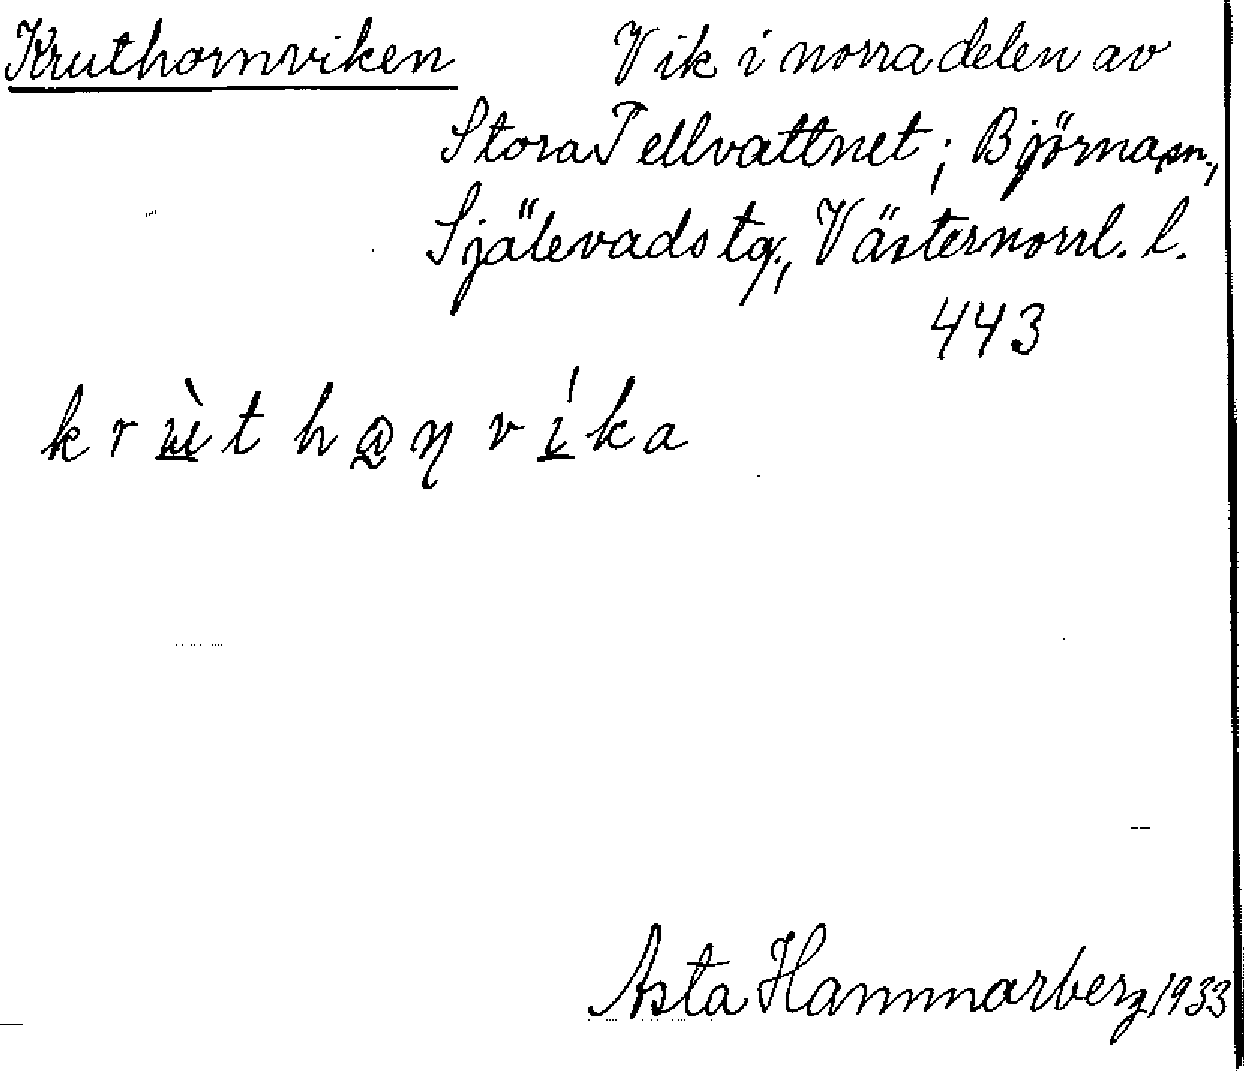 Kruthornviken Vik i norra delen av
Stora Tellvattnet; Björna sn.,
Själevads tg., Västernorrl. l.
443
krùt hɷɳ víka
Asta Hammarberg 1933